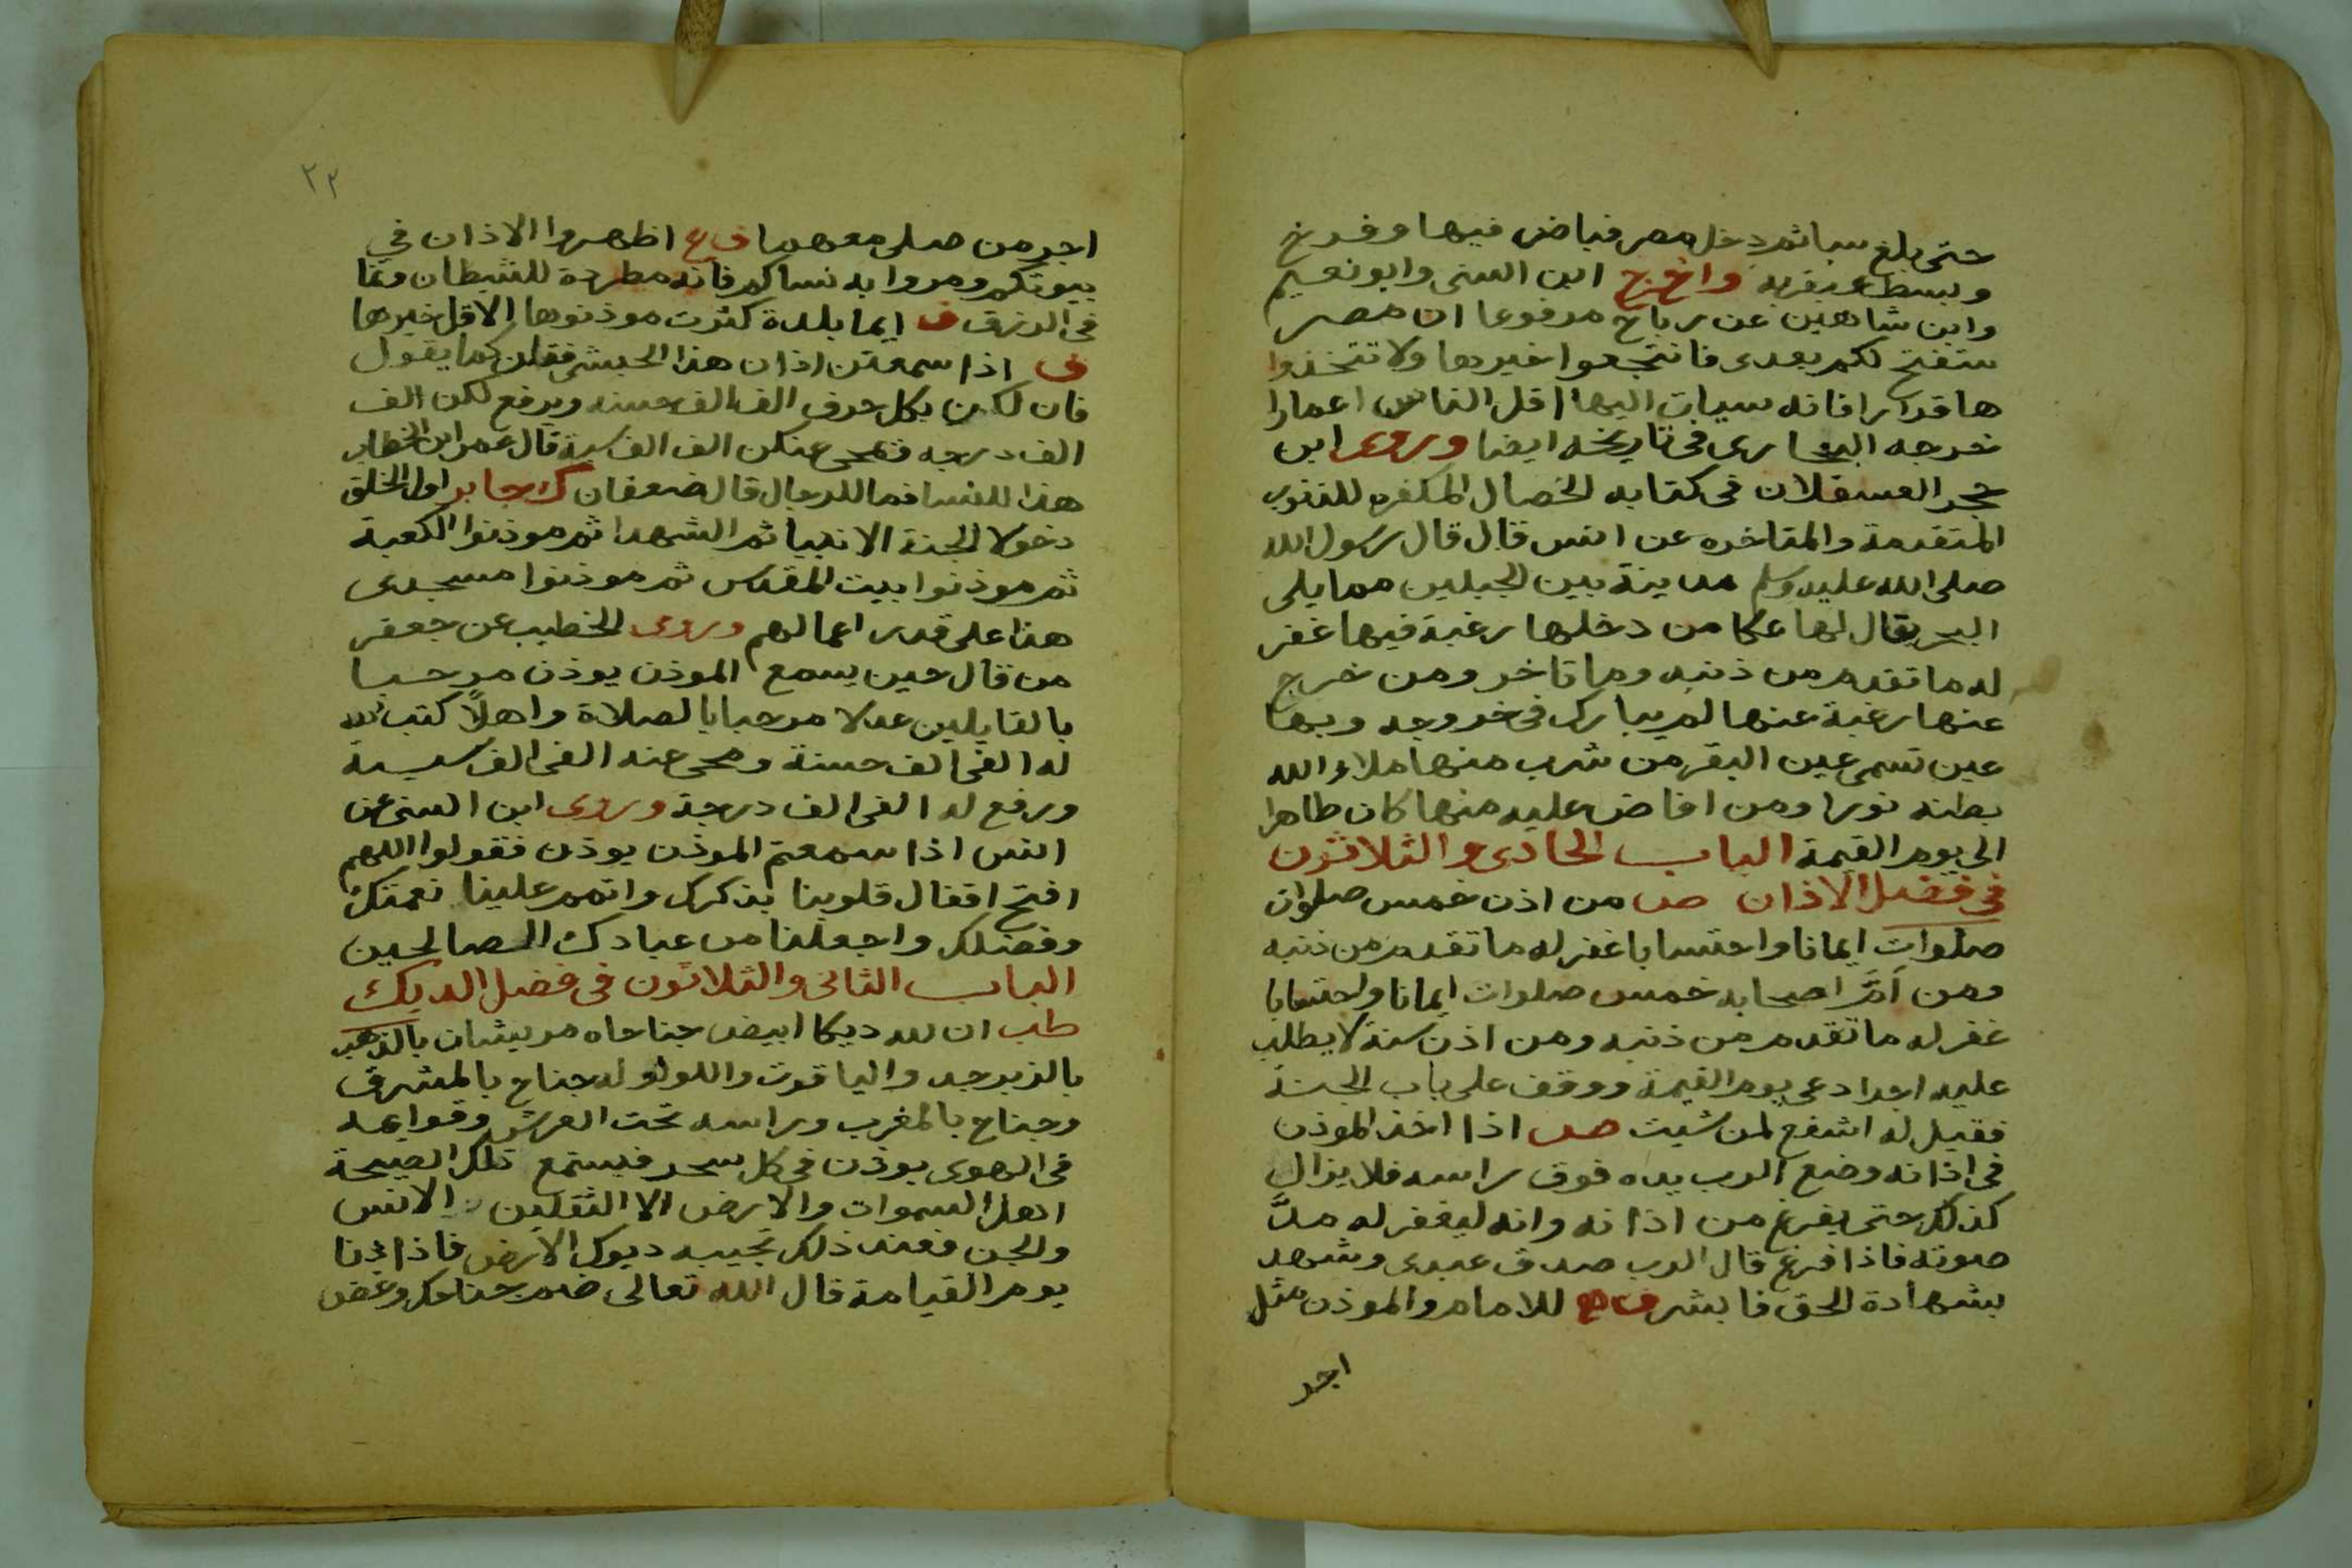 حتى بلغ سبا ثم دخل مصر فباض فيها وفرخ
وبسط عبقريه واخرج ابن السنى وابو نعيم
وابن شاهين عن رباح مرفوعا ان مصر
ستفتح لكم بعدى فانتجعوا خيرها ولا تتخذوا
ها قرارا فانه سياب اليها اقل الناس اعمارا
خرجه البخارى فى تاريخه ايضا وروى ابن
حجر العسقلان فى كتابه الخصال المكفره للذنوب
المتقدمة والمتاخره عن انس قال قال رسول الله
صلى الله عليه وسلم مدينة بين الجبلين مما يلى
البحر يقال لها عكا من دخلها رغبة فيها غفر
له ما تقدم من ذنبه وما تاخر ومن خرج
عنها رغبة عنها لم يبارك فى خروجه وبها
عين تسمى عين البقر من شرب منها ملاء الله
بطنه نورا ومن افاض عليه منها كان طاهرا
الى يوم القيمة الباب الحادى والثلاثون
فى فضل الاذان ص من اذن خمس صلوات
صلوات ايمانا واحتسابا غفر له ما تقدم من ذنبه
ومن اَمَّ اصحابه خمس صلوات ايمانا واحتسابا
غفر له ما تقدم من ذنبه ومن اذن سنة لا يطلب
عليه اجرا دعى يوم القيمة ووقف على باب الجنة
فقيل له اشفع لمن شيت ص اذا اخذ الموذن
فى اذانه وضع الرب يده فوق راسه فلا يزال
كذلك حتى يفرغ من اذانه وانه ليغفر له مدَّ
صوته فاذا فرغ قال الرب صدق عبدى وشهد
بشهادة الحق فابشر للامام والموذن مثل
اجر
٢٢
اجر من صلى معهما ف ع اظهروا الاذان في
بيوتكم ومروا به نساكم فانه مطردة للشيطان ونما
فى الرزق ف ايما بلدة كثرت موذنوها الا قل خيرها
ف اذا سمعتن اذان هذا الحبشى فقلن كما يقول
فان لكن بكل حرف الف الف حسنه ويرفع لكن الف
الف درجه وتمحى عنكن الف الف سية قال عمر ابن الخطاب
هذا للنسا فما للرجال قال ضعفان ك جابر اول الخلق
دخولا الجنة الانبيا ثم الشهدا ثم موذنوا الكعبة
ثم موذنوا بيت المقدس ثم موذنوا مسجدى
هذا على قدر اعمالهم وروى الخطيب عن جعفر
من قال حين يسمع الموذن يوذن مرحبا
بالقايلين عدلا مرحبا بالصلاة واهلاً كتب الله
له الفى الف حسنة ومحى عنه الفى الف سية
ورفع له الفى الف درجة وروى ابن السنى عن
انس اذا سمعتم الموذن يوذن فقولوا اللهم
افتح اقفال قلوبنا بذكرك واتمم علينا نعمتك
وفضلك واجعلنا من عبادك الصالحين
الباب الثانى والثلاثون فى فضل الديك
طب ان لله ديكا ابيض جناحاه مريشان بالذهب
بالزبرجد والياقوت واللولو له جناح بالمشرق
وجناح بالمغرب وراسه تحت العرش وقوايمه
فى الهوى يوذن فى كل سحر فيستمع تلك الصيحة
اهل السموات والارض الا الثقلين الانس
والجن فعند ذلك تجيبه ديوك الارض فاذا دنا
يوم القيامة قال الله تعالى ضم جناحك وغض